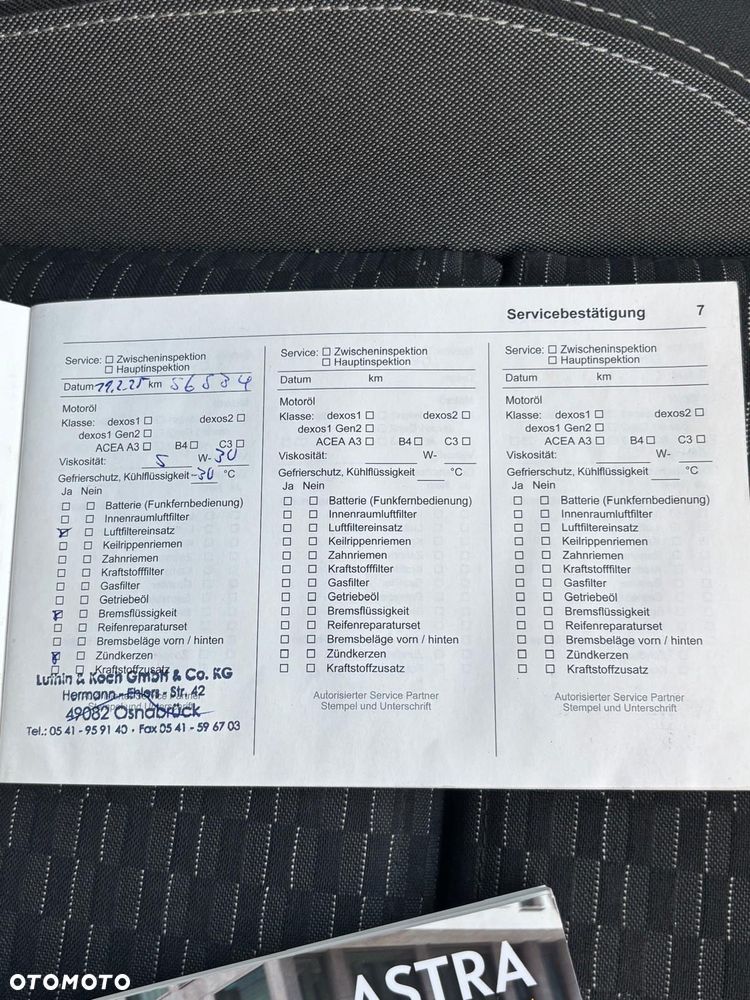 Servicebestätigung 7
Service: ☐ Zwischeninspektion
☐ Hauptinspektion
Datum 19.2.25 km 56534
Motoröl
Klasse: dexos1 ☐ dexos2 ☐
dexos1 Gen2 ☐
ACEA A3 ☐ B4 ☐ C3 ☐
Viskosität: 5 W- 30
Gefrierschutz, Kühlflüssigkeit -30 °C
Ja Nein
Batterie (Funkfernbedienung)
Innenraumluftfilter
Luftfiltereinsatz
Keilrippenriemen
Zahnriemen
Kraftstofffilter
Gasfilter
Getriebeöl
Bremsflüssigkeit
Reifenreparaturset
Bremsbeläge vorn / hinten
Zündkerzen
Kraftstoffzusatz
& Koch GmbH & Co. KG
Hermann-Ehlers-Str. 42
49082 Osnabrück
Tel.: 05 41 - 95 91 40 · Fax 05 41 - 59 67 03
Service: ☐ Zwischeninspektion
☐ Hauptinspektion
Datum km
Motoröl
Klasse: dexos1 ☐ dexos2 ☐
dexos1 Gen2 ☐
ACEA A3 ☐ B4 ☐ C3 ☐
Viskosität: W-
Gefrierschutz, Kühlflüssigkeit °C
Ja Nein
Batterie (Funkfernbedienung)
Innenraumluftfilter
Luftfiltereinsatz
Keilrippenriemen
Zahnriemen
Kraftstofffilter
Gasfilter
Getriebeöl
Bremsflüssigkeit
Reifenreparaturset
Bremsbeläge vorn / hinten
Zündkerzen
Kraftstoffzusatz
Autorisierter Service Partner
Stempel und Unterschrift
Service: ☐ Zwischeninspektion
☐ Hauptinspektion
Datum km
Motoröl
Klasse: dexos1 ☐ dexos2 ☐
dexos1 Gen2 ☐
ACEA A3 ☐ B4 ☐ C3 ☐
Viskosität: W-
Gefrierschutz, Kühlflüssigkeit °C
Ja Nein
Batterie (Funkfernbedienung)
Innenraumluftfilter
Luftfiltereinsatz
Keilrippenriemen
Zahnriemen
Kraftstofffilter
Gasfilter
Getriebeöl
Bremsflüssigkeit
Reifenreparaturset
Bremsbeläge vorn / hinten
Zündkerzen
Kraftstoffzusatz
Autorisierter Service Partner
Stempel und Unterschrift
ASTRA
OTOMOTO